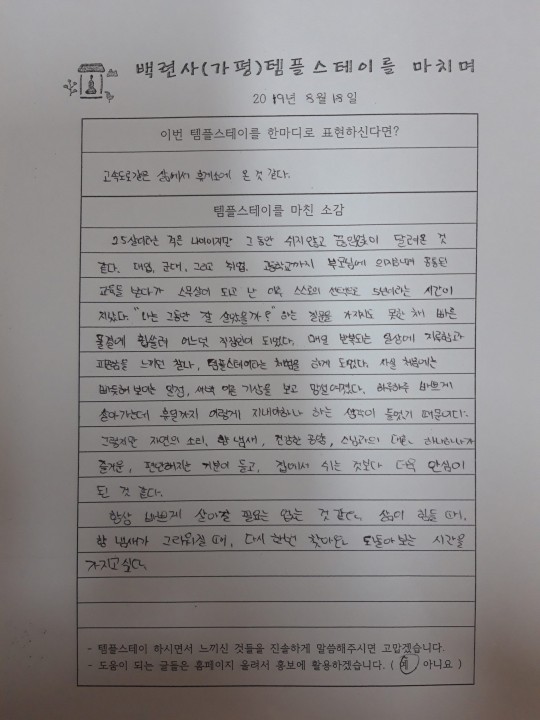 백련사(가평)템플스테이를 마치며
2019년 8월 18일
이번 템플스테이를 한마디로 표현하신다면?
고속도로같은 삶에서 휴게소에 온 것 같다.
템플스테이를 마친 소감
25살이라는 적은 나이이지만 그동안 쉬지않고 끊임없이 달려온 것
같다. 대입, 군대, 그리고 취업. 고등학교까지 부모님에 의지하며 공통된
교육을 받다가 스무살이 되고 난 이후 스스로의 선택으로 5년이라는 시간이
지났다. "나는 그동안 잘 살았을까?" 라는 질문을 가지지도 못한 채 바쁜
물결에 휩쓸려 어느덧 직장인이 되었다. 매일 반복되는 일상에 지루함과
피로함을 느끼던 찰나, 템플스테이라는 체험을 하게 되었다. 사실 처음에는
빠듯해 보이는 일정, 새벽 이른 기상을 보고 망설여졌다. 하루하루 바쁘게
살아가는데 휴일까지 이렇게 지내야하나 하는 생각이 들었기 때문이다.
그렇지만 자연의 소리, 향 냄새, 건강한 공양, 스님과의 대화, 하나하나가
즐거운, 편안해지는 기분이 들고, 집에서 쉬는 것보다 더욱 안심이
된 것 같다.
항상 바쁘게 살아갈 필요는 없는 것 같다. 삶이 힘들 때,
향 냄새가 그리워질 때, 다시 한번 찾아와 되돌아보는 시간을
가지고 싶다.
- 템플스테이 하시면서 느끼신 것들을 진솔하게 말씀해주시면 고맙겠습니다.
- 도움이 되는 글들은 홈페이지 올려서 홍보에 활용하겠습니다. ( 예 아니요 )